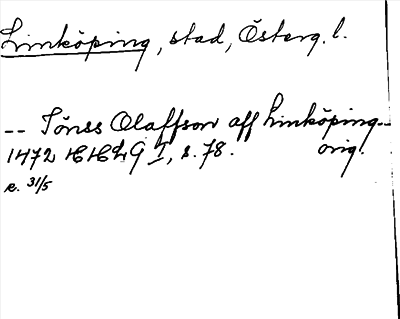 Linköping, stad, Österg. l.
-- Jönss Olaffson aff Linköping --
1472 HHLG I, s. 78. orig.
e. 31/5